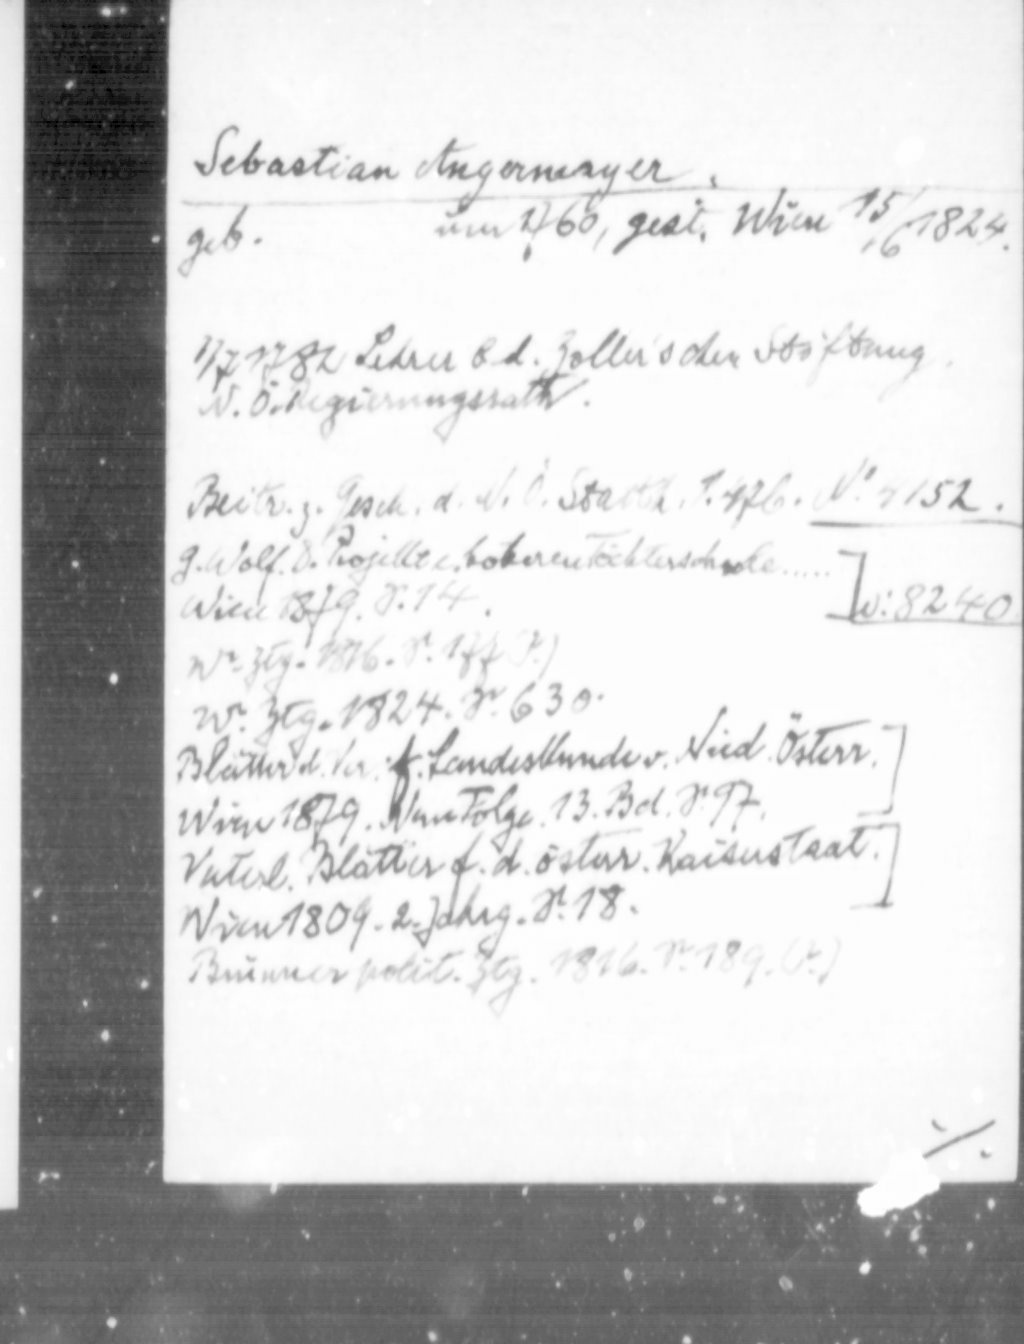 Sebastian Angermayer.
geb. um 1760, gest. Wien 15/6 1824.
1/7 1782 Lehrer b d. Zoller'schen Stiftung.
N. Ö. Regierungsrath.
Beitr. z. Gesch. d. N. Ö. Statth. S. 476. N: 4152.
G. Wolf. D. Projekt e. höheren Töchterschule.....
Wien 1879. S. 14. N: 8240
Wr. Ztg. 1816. Nr. 177 (St.)
Wr. Ztg. 1824. Nr. 630.
Blätter d. Ver. f. Landeskunde v. Nied. Österr.
Wien 1879. Neue Folge. 13. Bd. S. 97.
Vaterl. Blätter f. d. österr. Kaiserstaat.
Wien 1809. 2. Jahrg. Nr. 18.
Brünner polit. Ztg. 1816. Nr. 189. (St.)
./.